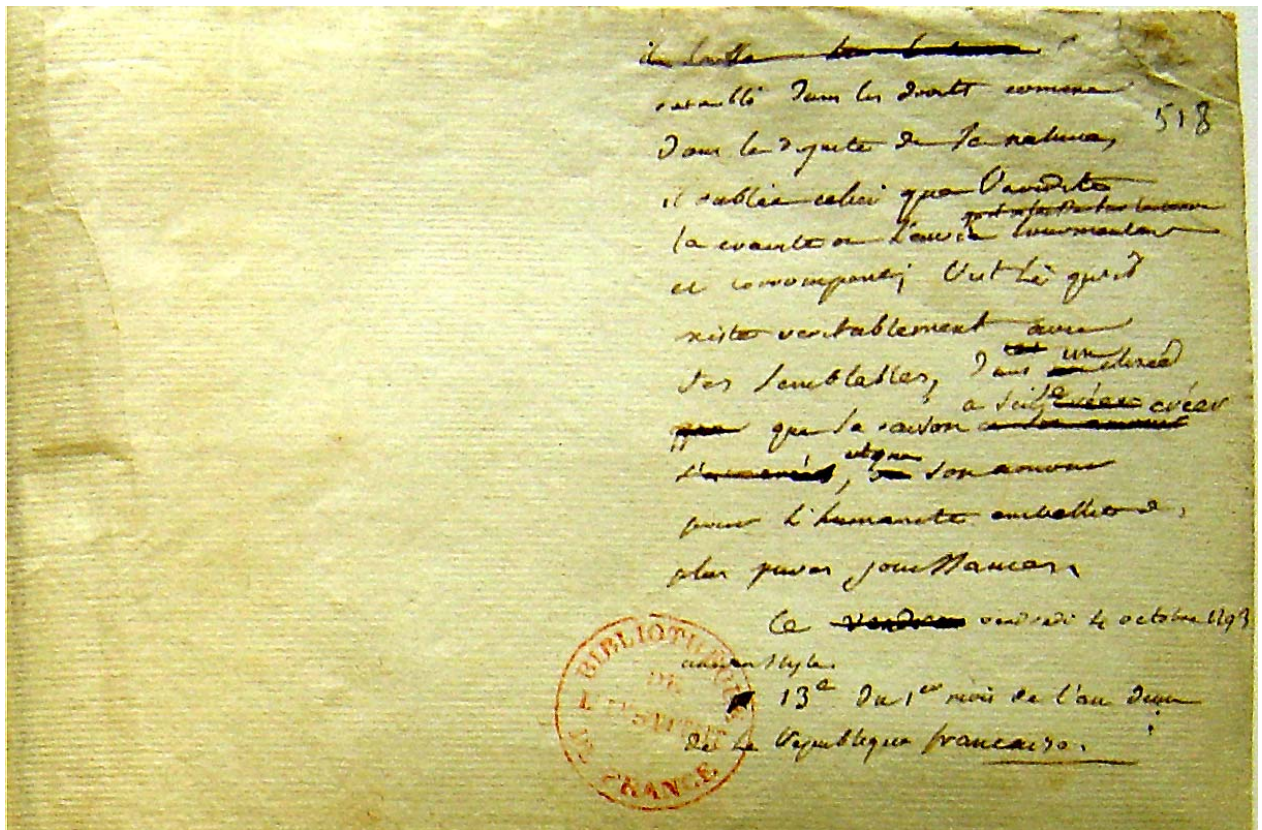 518
retabli dans les droits comme
dans la dignite de sa nature,
il oublie celui que l'avidite
la crainte ou l'envie tourmentent
et corrompent; c'est là qu'il
existe veritablement avec
ses semblables, dans un elisée
que sa raison a su se créer
et que son amour
pour l'humanite embellit de
plus pures jouissances.
Ce vendredi 4 octobre 1793
ancien style.
13e du 1er mois de l'an deux
de la republique francaise.
BIBLIOTHEQUE
DE
L'INSTITUT
DE FRANCE